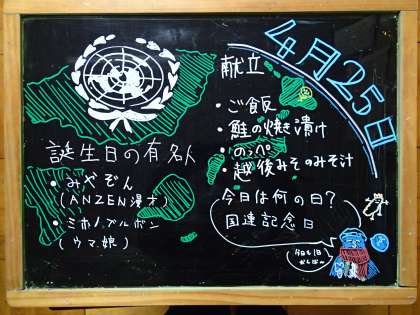 4月25日
献立
・ご飯
・鮭の焼き漬け
・のっぺ
・越後みそのみそ汁
誕生日の有名人
・みやぞん
(ANZEN漫才)
・ミホノブルボン
(ウマ娘)
今日は何の日?
国連記念日
今日も1日